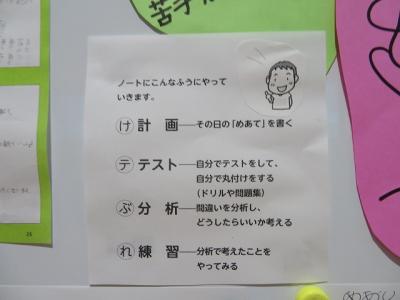 苦手
ノートにこんなふうにやって
いきます。
け 計 画──その日の「めあて」を書く
テ テスト──自分でテストをして、
自分で丸付けをする
(ドリルや問題集)
ぶ 分 析──間違いを分析し、
どうしたらいいか考える
れ 練 習──分析で考えたことを
やってみる